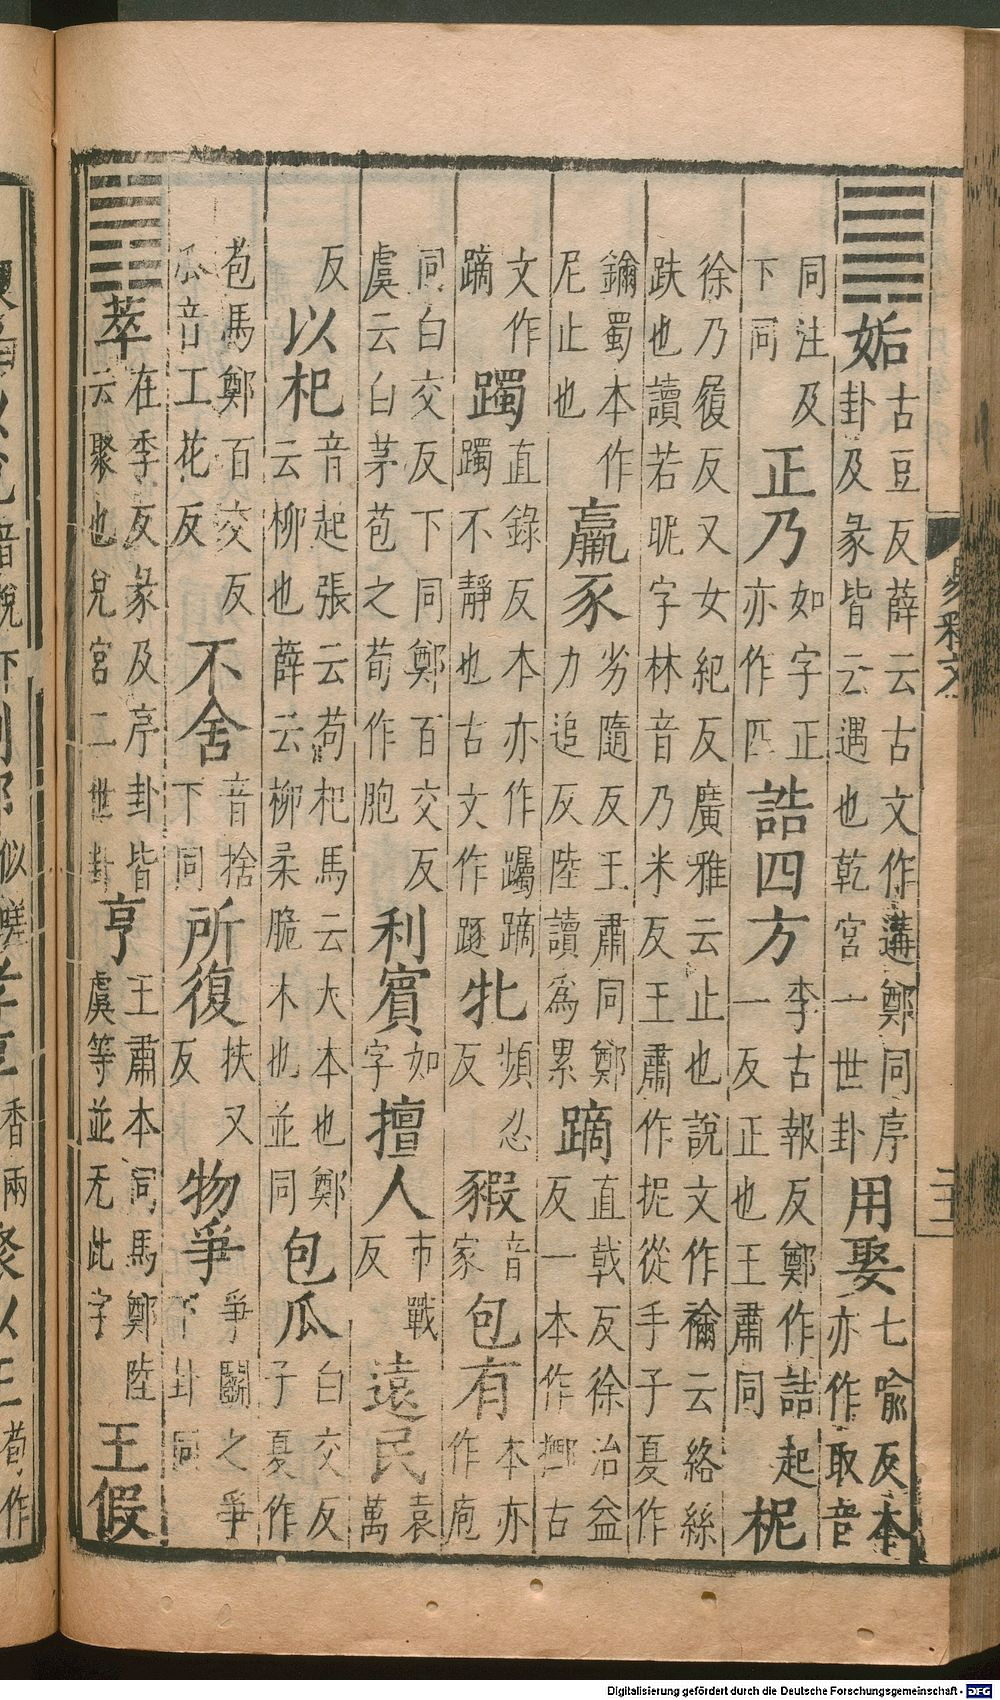 ䷫姤古豆反薛云古文作遘鄭同序卦及彖皆云遇也乾宮一世卦用娶七喻反本亦作取音
同注及下同正乃如字正亦作匹誥四方李古報反鄭作詰起一反正也王肅同柅
徐乃履反又女紀反廣雅云止也說文作檷云絡絲趺也讀若昵字林音乃米反王肅作抳從手子夏作
鑈蜀本作尼止也羸豕劣隨反王肅同鄭力追反陸讀爲累蹢直戟反徐治益反一本作躑古
文作蹢躅直錄反本亦作躅蹢躅不靜也古文作䠱牝頻忍反豭音家包有本亦作庖
同白交反下同鄭百交反虞云白茅苞之荀作胞利賓如字擅人市戰反遠民袁萬
反以杞音起張云苟杞馬云大本也鄭云柳也薛云柳柔脆木也並同包瓜白交反子夏作
苞馬鄭百交反瓜音工花反不舍音捨下同所復扶又反物爭爭鬬之爭下卦同
䷬萃在季反彖及序卦皆云聚也兌宮二世卦亨王肅本同馬鄭陸虞等並无此字王假
易釋文
Digitalisierung gefördert durch die Deutsche Forschungsgemeinschaft - DFG